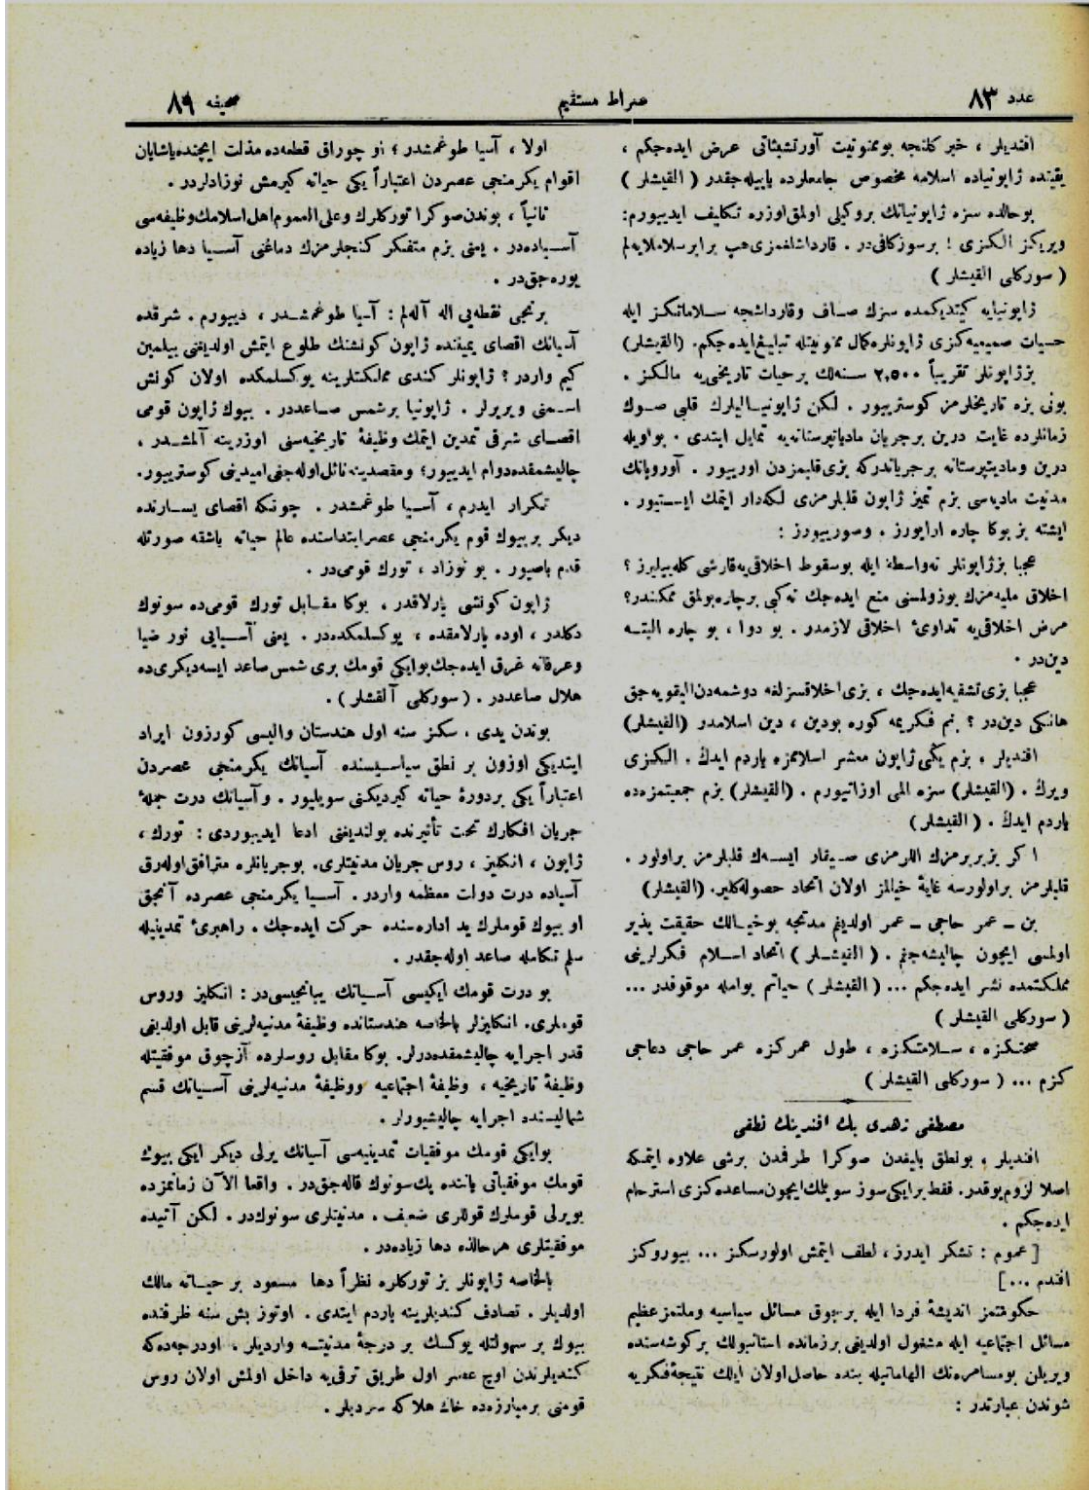 عدد ٨٣
صراط مستقیم
صحیفه ٨٩
افندیلر ، خبر کلنجه بوممنونیت آورتشبثاتی عرض ایده‌جکم ،
یقینده ژاپونیاده اسلامه مخصوص جامعلرده یاپیله‌جقدر ( القیشلر )
بوحالده سزه ژاپونیانك بروکیلی اولمق‌اوزره تکلیف ایدییورم:
ویریکز الکزی ! برسوزکافی‌در . قارداشلغمزی‌هپ برابرسلاملایه‌لم
( سورکلی القیشلر )
ژاپونیایه کیتدیکمده سزك صاف وقارداشجه سلاماتکز ایله
حسیات صمیمیه‌کزی ژاپونلره‌کمال ممنونیتله تبلیغ‌ایده‌جکم. (القیشلر)
بزژاپونلر تقریباً ٢,٥٠٠ سنه‌لك برحیات تاریخی‌یه مالکز .
بونی بزه تاریخلرمز کوستریبور . لکن ژاپونیالیلرك قلبی صوك
زمانلرده غایت درین برجریان مادیاتپرستانه‌یه تمایل ایتدی . بواویله
درین ومادیتپرستانه برجریاندرکه بزی‌قلبمزدن اورییور . آوروپانك
مدنیت مادیه‌سی بزم تمیز ژاپون قلبلرمزی لکه‌دار ایتمك ایستیور .
ایشته بز بوکا چاره ارایورز . وصورییورز :
عجبا بزژاپونلر نه‌واسطه ایله بوسقوط اخلاقی‌یه‌قارشی کله‌بیلیرز ؟
اخلاق ملیه‌مزك بوزولمسنی منع ایده‌جك نه‌کبی برچاره‌بولمق ممکندر؟
مرض اخلاقی‌یه تداوئ اخلاقی لازمدر . بو دوا ، بو چاره البته
دین‌در .
عجبا بزی‌تشفیه‌ایده‌جك ، بزی‌اخلاقسزلغه دوشمه‌دن‌الیقویه‌جق
هانکی دین‌در ؟ بنم فکریمه کوره بودین ، دین اسلامدر (القیشلر)
افندیلر ، بزم یکی ژاپون معشر اسلامزه یاردم ایدك . الکزی
ویرك . (القیشلر) سزه المی اوزاتیورم . (القیشلر) بزم جمعیتمزه‌ده
یاردم ایدك . ( القیشلر)
اکر بزبربرمزك اللرمزی صیقار ایسه‌ك قلبلرمز براولور .
قلبلرمز براولورسه غایۀ خیالمز اولان اتحاد حصوله‌کلیر. (القیشلر)
بن ــ عمر حاجی ــ عمر اولدیغم مدتجه بوخیالك حقیقت پذیر
اولمسی ایچون چالیشه‌جغم . ( القیشلر ) اتحاد اسلام فکرلرینی
مملکتمده نشر ایده‌جکم ... ( القیشلر ) حیاتم بوامله موقوفدر ...
( سورکلی القیشلر )
صحتکزه ، سلامتکزه ، طول عمرکزه عمر حاجی دعاجی
کزم ... ( سورکلی القیشلر )
مصطفی زهدی بك افندینك نطقی
افندیلر ، بونطق بلیغدن صوکرا طرفمدن برشی علاوه ایتمکه
اصلا لزوم‌یوقدر. فقط برایکی‌سوز سویلمك‌ایچون‌مساعده‌کزی استرحام
ایده‌جکم .
[ عموم : تشکر ایدرز ، لطف ایتمش اولورسکز ... بیوروکز
افندم ... ]
حکومتمز اندیشۀ فردا ایله برچوق مسائل سیاسیه وملتمزعظیم
مسائل اجتماعیه ایله مشغول اولدیغی برزمانده استانبولك برکوشه‌سنده
ویریلن بومسامره‌نك الهاماتیله بنده حاصل‌اولان ایلك نتیجۀ‌فکریه
شوندن عبارتدر :
اولا ، آسیا طوغمشدر ؛ او چوراق قطعه‌ده مذلت ایچنده‌یاشایان
اقوام یکرمنجی عصردن اعتباراً یکی حیاته کیرمش نوزادلردر.
ثانیاً ، بوندن‌صوکرا تورکلرك وعلی‌العموم‌اهل‌اسلامك‌وظیفه‌سی
آسیاده‌در . یعنی بزم متفکر کنجلرمزك دماغنی آسیا دها زیاده
یوره‌جق‌در .
برنجی نقطه‌یی اله آله‌لم : آسیا طوغمشدر ، دییورم . شرقده
آسیانك اقصای یمیننده ژاپون کونشنك طلوع ایتمش اولدیغنی بیلمین
کیم واردر ؟ ژاپونلر کندی مملکتلرینه یوکسلمکده اولان کونش
اسمنی ویریرلر . ژاپونیا برشمس صاعددر . بیوك ژاپون قومی
اقصای شرقی تمدین ایتمك وظیفۀ تاریخیه‌سنی اوزرینه آلمشدر ،
چالیشمقده‌دوام ایدییور؛ ومقصدینه نائل‌اوله‌جغی‌امیدینی کوستریبور.
تکرار ایدرم ، آسیا طوغمشدر . چونکه اقصای یسارنده
دیکر بربیوك قوم یکرمنجی عصرابتداسنده عالم حیاته باشقه صورتله
قدم باصیور . بو نوزاد ، تورك قومی‌در .
ژاپون کونشی پارلاقدر ، بوکا مقابل تورك قومی‌ده سونوك
دکلدر ، اوده پارلامقده ، یوکسلمکده‌در . یعنی آسیایی نور ضیا
وعرفانه غرق ایده‌جك‌بوایکی قومك بری شمس صاعد ایسه‌دیکری‌ده
هلال صاعددر . (سورکلی آلقشلر) .
بوندن یدی ، سکز سنه اول هندستان والیسی کورزون ایراد
ایتدیکی اوزون بر نطق سیاسیسنده آسیانك یکرمنجی عصردن
اعتباراً یکی بردورۀ حیاته کیردیکنی سویلیور . وآسیانك درت جملۀ
جریان افکارك تحت تأثیرنده بولندیغنی ادعا ایدییوردی : تورك ،
ژاپون ، انکلیز ، روس جریان مدنیتلری. بوجریانلره مترافق‌اوله‌رق
آسیاده درت دولت معظمه واردر . آسیا یکرمنجی عصرده آنجق
او بیوك قوملرك ید اداره‌سنده حرکت ایده‌جك ، راهبرئ تمدینیله
سلم تکامله صاعد اوله‌جقدر .
بو درت قومك ایکیسی آسیانك یبانجیسی‌در : انکلیز وروس
قوملری. انکلیزلر بالخاصه هندستانده وظیفۀ مدنیه‌لرینی قابل اولدیغی
قدر اجرایه چالیشمقده‌درلر. بوکا مقابل روسلرده آزچوق موفقیتله
وظیفۀ تاریخیه ، وظیفۀ اجتماعیه ووظیفۀ مدنیه‌لرینی آسیانك قسم
شمالیسنده اجرایه چالیشیورلر .
بوایکی قومك موفقیات تمدینیه‌سی آسیانك یرلی دیکر ایکی بیوك
قومك موفقیاتی یاننده پك‌سونوك قاله‌جق‌در . واقعا الآن زمانمزده
بویرلی قوملرك قوللری ضعیف ، مدنیتلری سونوك‌در . لکن آتیده
موفقیتلری هرحالده دها زیاده‌در .
بالخاصه ژاپونلر بز تورکلره نظراً دها مسعود بر حیاته مالك
اولدیلر . تصادف کندیلرینه یاردم ایتدی . اوتوز بش سنه ظرفنده
بیوك بر سهولتله یوکسك بر درجۀ مدنیته واردیلر ، اودرجه‌ده‌که
کندیلرندن اوچ عصر اول طریق ترقی‌یه داخل اولمش اولان روس
قومنی برمبارزه‌ده خاك هلاکه سردیلر .